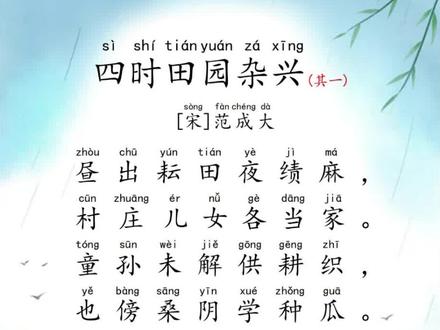 sì shí tián yuán zá xīng
四时田园杂兴(其一)
sòng fàn chéng dà
[宋]范成大
zhòu chū yún tián yè jì má
昼出耘田夜绩麻，
cūn zhuāng ér nǚ gè dāng jiā
村庄儿女各当家。
tóng sūn wèi jiě gōng gēng zhī
童孙未解供耕织，
yě bàng sāng yīn xué zhǒng guā
也傍桑阴学种瓜。